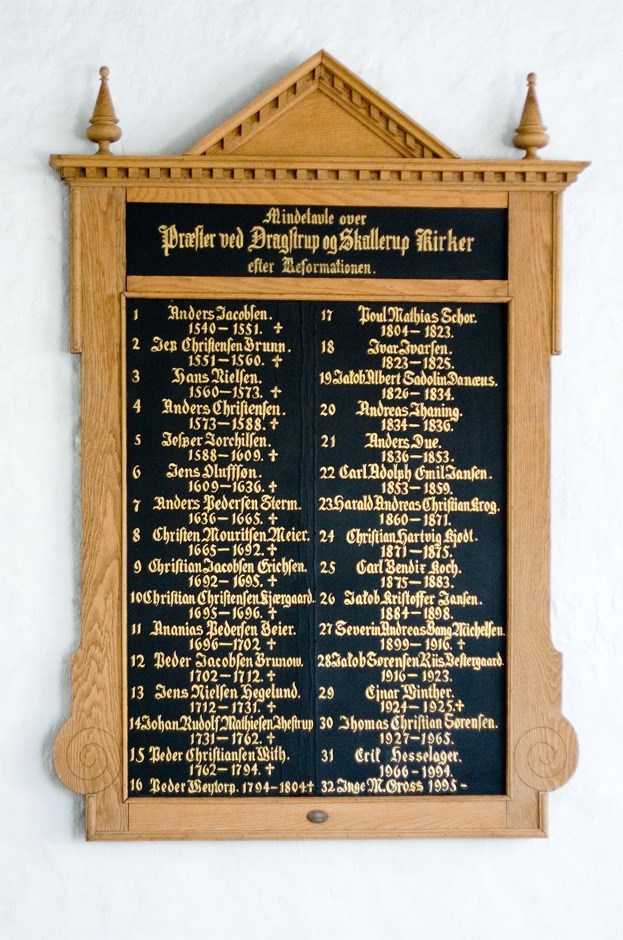 Mindetavle over
Præster ved Dragstrup og Skallerup Kirker
efter Reformationen.
1 Anders Jacobsen.
1540 – 1551. †
2 Jep Christensen Brunn.
1551 – 1560. †
3 Hans Nielsen.
1560 – 1573. †
4 Anders Christensen.
1573 – 1588. †
5 Jesper Torchilsen.
1588 – 1609. †
6 Jens Oluffsøn.
1609 – 1636. †
7 Anders Pedersen Sterm.
1636 – 1665. †
8 Christen Mouritsen Meier.
1665 – 1692. †
9 Christian Jacobsen Erichsen.
1692 – 1695. †
10 Christian Christensen Kjærgaard.
1695 – 1696. †
11 Ananias Pedersen Beier.
1696 – 1702 †
12 Peder Jacobsen Brunow.
1702 – 1712. †
13 Jens Nielsen Hegelund.
1712 – 1731. †
14 Johan Rudolf Mathiesen Thestrup
1731 – 1762. †
15 Peder Christiansen With.
1762 – 1794. †
16 Peder Weytorp. 1794 – 1804 †
17 Poul Mathias Schor.
1804 – 1823.
18 Ivar Ivarsen.
1823 – 1825.
19 Jakob Albert Gadolin Danæus.
1826 – 1834.
20 Andreas Thaning.
1834 – 1836
21 Anders Due.
1836 – 1853.
22 Carl Adolph Emil Jansen.
1853 – 1859.
23 Harald Andreas Christian Krog.
1860 – 1871.
24 Christian Hartvig Kjødt.
1871 – 1875.
25 Carl Bendix Koch.
1875 – 1883.
26 Jakob Kristoffer Jansen.
1884 – 1898.
27 Severin Andreas Bang Michelsen.
1899 – 1916. †
28 Jakob Sørensen Riis Vestergaard.
1916 – 1923.
29 Ejnar Winther.
1924 – 1925. †
30 Thomas Christian Sørensen.
1927 – 1965.
31 Erik Hesselager.
1966 – 1994.
32 Inge M. Gross 1995 –